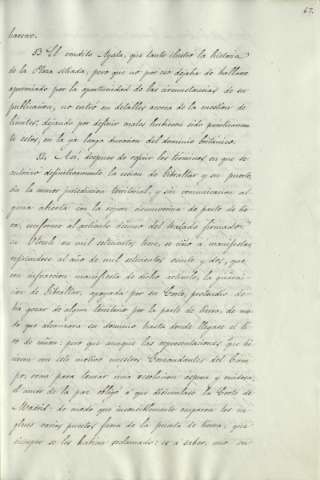 67.
harcno.
53 El erudito Ayala, que tanto ilustró la historia
de la Plaza sitiada, pero que no por eso dejaba de hallarse
apremiado por la oportunidad de las circunstancias de su
publicación, no entró en detalles acerca de la cuestión de
límites, dejando por definir cuales hubieron sido primitivamen-
te estos, en la ya larga duracion del dominio británico.
54. Asi, despues de referir los términos en que se
estableció definitivamente la cesion de Gibraltar y su puerto
sin la menor jurisdiccion territorial, y sin comunicacion al-
guna abierta con la region circunvecina de parte de tier-
ra, conforme al artículo décimo del tratado firmado
en Utrech en mil setecientos trece, se ciñó á manifestar
refiriendose al año de mil setecientos veinte y dos, que,
con infraccion manifiesta de dicho artículo, la guarni-
cion de Gibraltar, apoyada por su Corte, pretendia de-
bia gozar de algun territorio por la parte de tierra, de mo-
do que alcanzara su dominio hasta donde llegase el ti-
ro de cañon: pero que aunque las representaciones que hi-
cieron con este motivo nuestros Comandantes del Cam-
po, eran para tomar una resolucion séria y ruidosa,
el amor de la paz obligó á que disimulase la Corte de
Madrid: de modo que insensiblemente ocuparon los in-
gleses varios puestos fuera de la puerta de tierra, que
siempre se les habian reclamado: es a saber, uno en